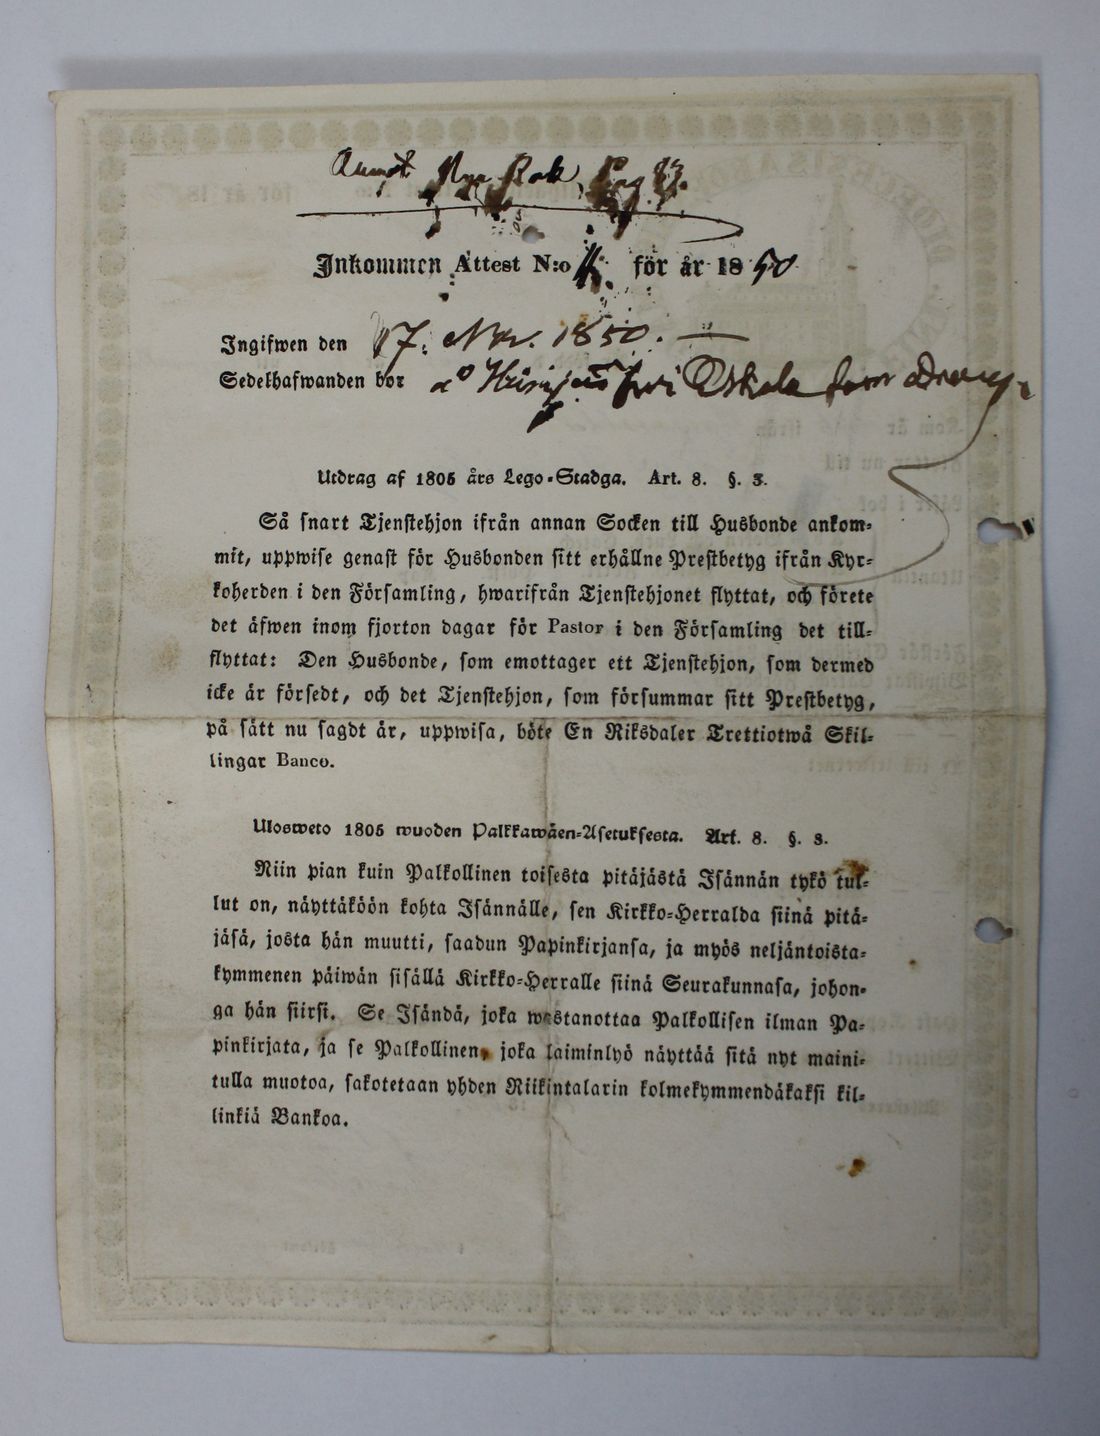 Inkommen Attest N:o för år 1850
Ingifwen den 17. Nov. 1850. —
Sedelhafwanden bor
Utdrag af 1805 års Lego-Stadga. Art. 8. §. 3.
Så snart Tjenstehjon ifrån annan Socken till Husbonde ankom-
mit, uppwise genast för Husbonden sitt erhållne Prestbetyg ifrån Kyr-
koherden i den Församling, hwarifrån Tjenstehjonet flyttat, och förete
det äfwen inom fjorton dagar för Pastor i den Församling det till-
flyttat: Den Husbonde, som emottager ett Tjenstehjon, som dermed
icke är försedt, och det Tjenstehjon, som försummar sitt Prestbetyg,
på sätt nu sagdt är, uppwisa, böte En Riksdaler Trettiotwå Skil-
lingar Banco.
Ulosweto 1805 wuoden Palkkawäen-Asetuksesta. Art. 8. §. 3.
Niin pian kuin Palkollinen toisesta pitäjästä Isännän tykö tul-
lut on, näyttäköön kohta Isännälle, sen Kirkko-Herralda siinä pitä-
jäsä, josta hän muutti, saadun Papinkirjansa, ja myös neljäntoista-
kymmenen päiwän sisällä Kirkko-Herralle siinä Seurakunnasa, johon-
ga hän siirsi. Se Isändä, joka wastanottaa Palkollisen ilman Pa-
pinkirjata, ja se Palkollinen, joka laiminlyö näyttää sitä nyt maini-
tulla muotoa, sakotetaan yhden Riikintalarin kolmekymmendäkaksi kil-
linkiä Bankoa.